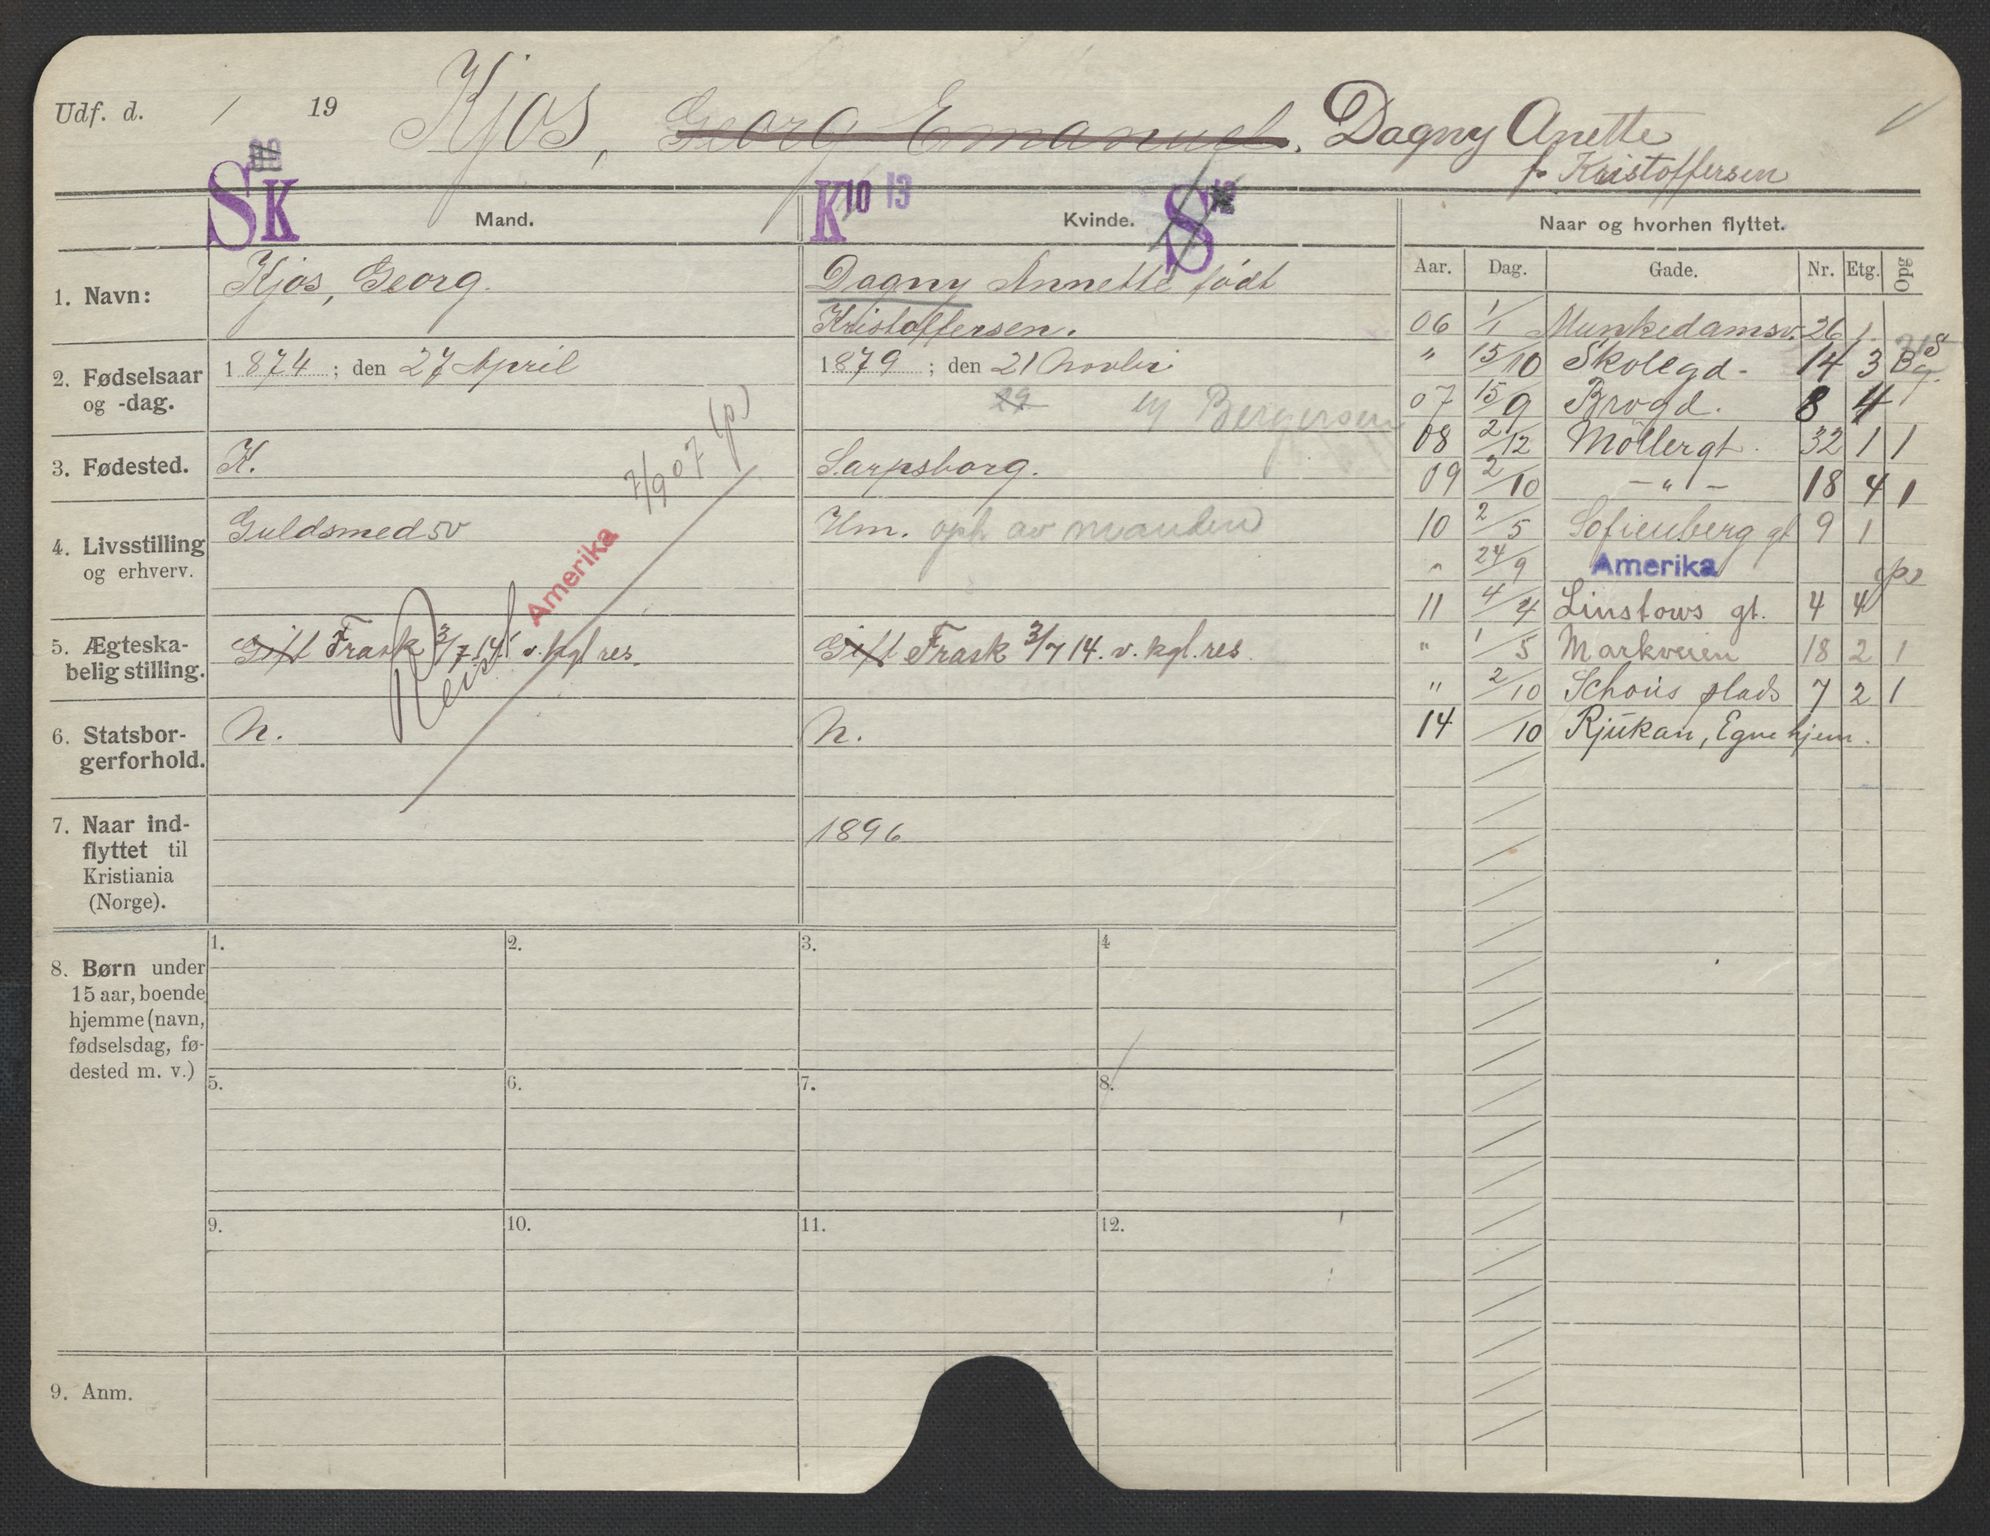 Udf. d. / 19 Kjos, Georg Emanuel. Dagny Anette
f. Kristoffersen
SK Mand. K 10 13 Kvinde. S Naar og hvorhen flyttet.
Aar. Dag. Gade. Nr. Etg. Opg
1. Navn: Kjos, Georg. Dagny Annette født
Kristoffersen.
2. Fødselsaar og -dag. 1874; den 27 April 1879; den 21 Novbr
29 Bergersen
3. Fødested. K. Sarpsborg.
7/9 07 (p)
4. Livsstilling og erhverv. Guldsmedsv Hm. oph av manden
Reist Amerika
5. Ægteska-
belig stilling. Gift Frask 3/7 14 v. kgl. res. Gift Frask 3/7 14. v. kgl. res.
6. Statsbor-
gerforhold. N. N.
7. Naar ind-
flyttet til
Kristiania
(Norge). 1896
06 1/1 Munkedamsv. 26 1
" 15/10 Skolegd. 14 3 Bg.
07 15/9 Brogd. 8 4 1
08 2/12 Möllergt. 32 1 1
09 2/10 — " — 18 4 1
10 2/5 Sofienberg gt 9 1
" 24/9 Amerika (p)
11 4/4 Linstows gt. 4 4
" 1/5 Markveien 18 2 1
" 2/10 Schous plads 7 2 1
14 /10 Rjukan, Egne hjem.
8. Børn under
15 aar, boende
hjemme (navn,
fødselsdag, fø-
dested m. v.)
1. 2. 3. 4
5. 6. 7. 8.
9. 10. 11. 12.
9. Anm.